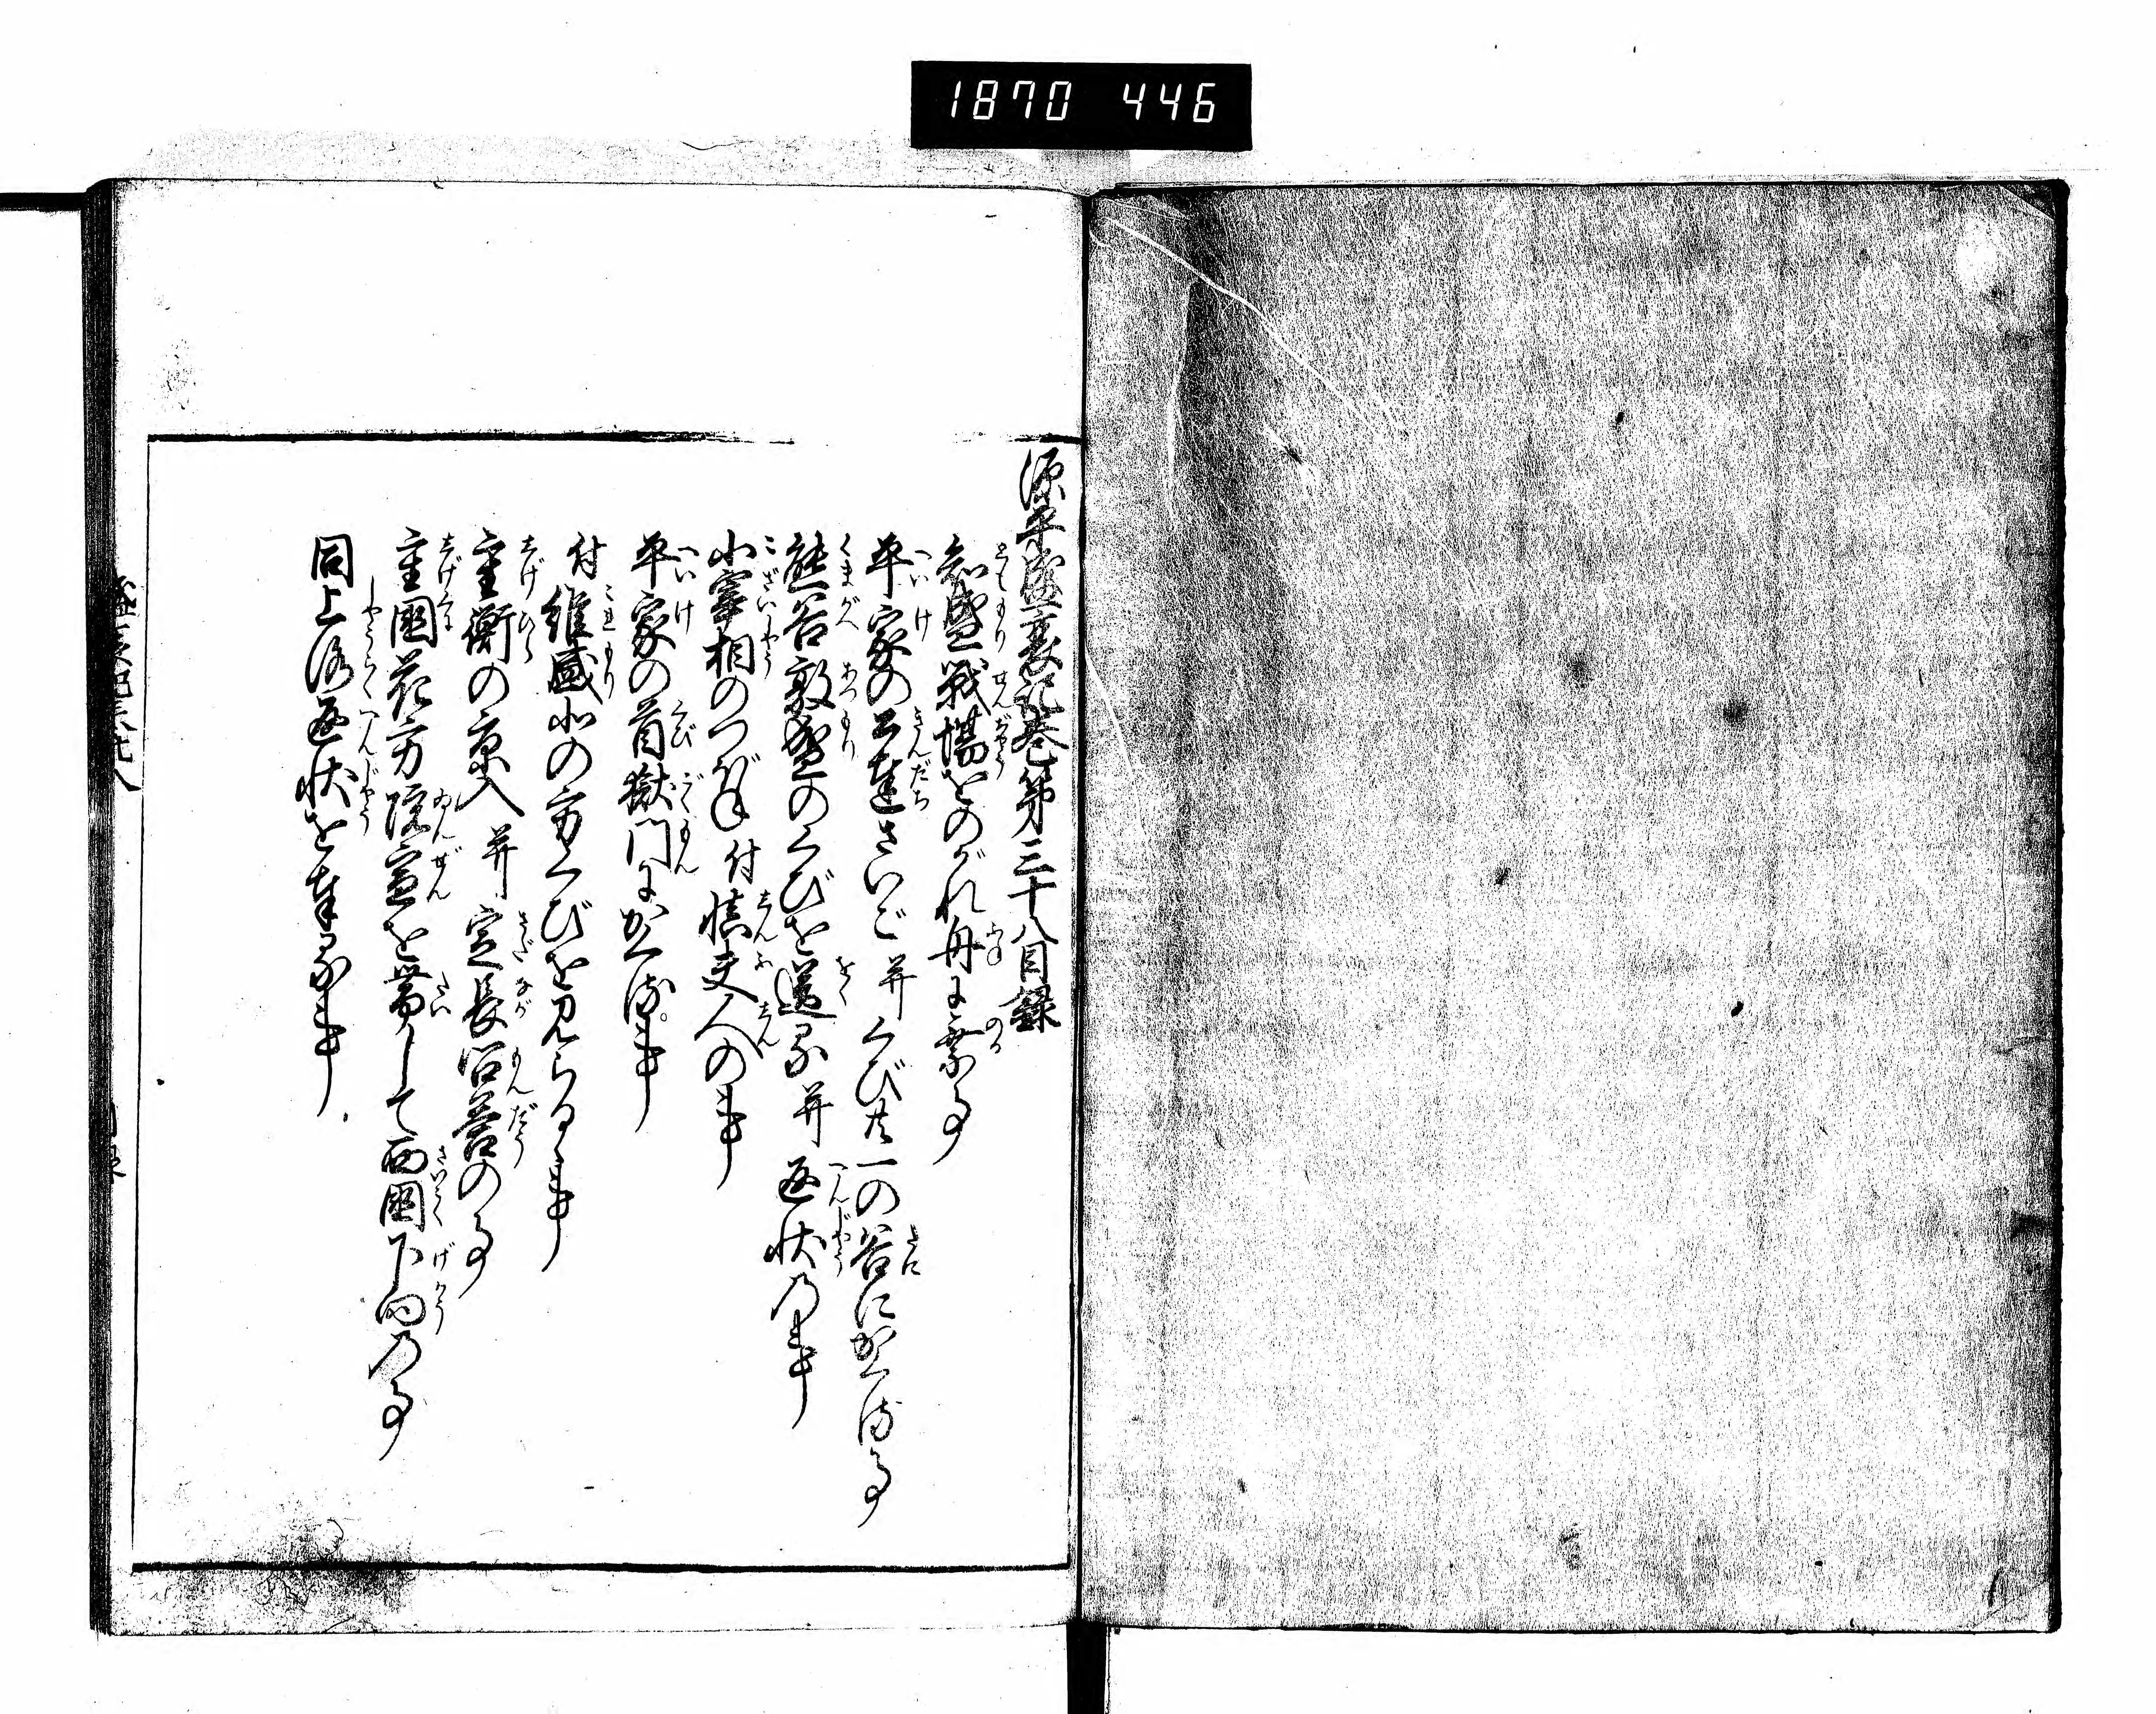 1870 446
源平盛衰記巻第三十八目録
知盛戦場をのがれ舟に乗る事
平家の公達さいご并くび共一の谷にかくる事
熊谷敦盛のくびを送る并返状の事
小宰相のつぼね付慎夫人の事
平家の首獄門にかくる事
付維盛北の方くびを見らるゝ事
重衡の京入并定長問答の事
重国花方院宣を帯して西国下向の事
同上洛返状を奉る事